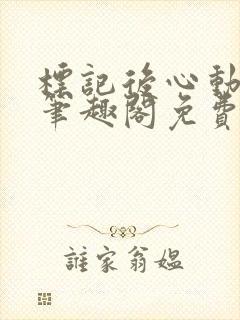 標記後心動
筆趣閣免費
誰家翁媼